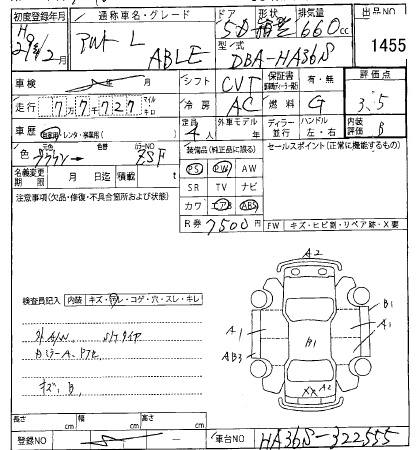 初度登録年月 通称車名・グレード ドア 形状 排気量 出品NO
H29年2月 アルト L ABLE 5D 箱型 660cc 1455
型式 DBA-HA36S
車検 年 月 シフト CVT 保証書 有・無 評価点
走行 7万7千727 マイル キロ 冷房 AC 燃料 G 3.5
車歴 自家用・レンタ・事業用( ) 定員 4人 外車モデル 年 ディーラー 並行 ハンドル 左・右 内装評価 B
色 元色 ブラウン 色替 カラーNO ZSF 装備品(純正品に限る) セールスポイント(正常に機能するもの)
名義変更期限 月 日迄 積載 t PS PW AW
注意事項(欠品・修復・不具合箇所および状態) SR TV ナビ
カワ エアB ABS
R券 7500円 FW キズ・ヒビ割・リペア跡・X要
A2
検査員記入 内装 キズ・汚レ・コゲ・穴・スレ・キレ
B1
A1 B1 A1
AB3
キズ、B、
XX A2
長さ cm 幅 cm 高さ cm
登録NO 車台NO HA36S-322555